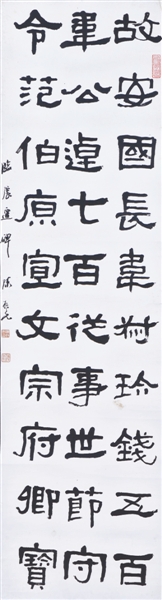 故安國長韋叔珍錢五百
車公逴七百從事世節守
令范伯原宣文宗府卿寶
臨張遷碑 陳